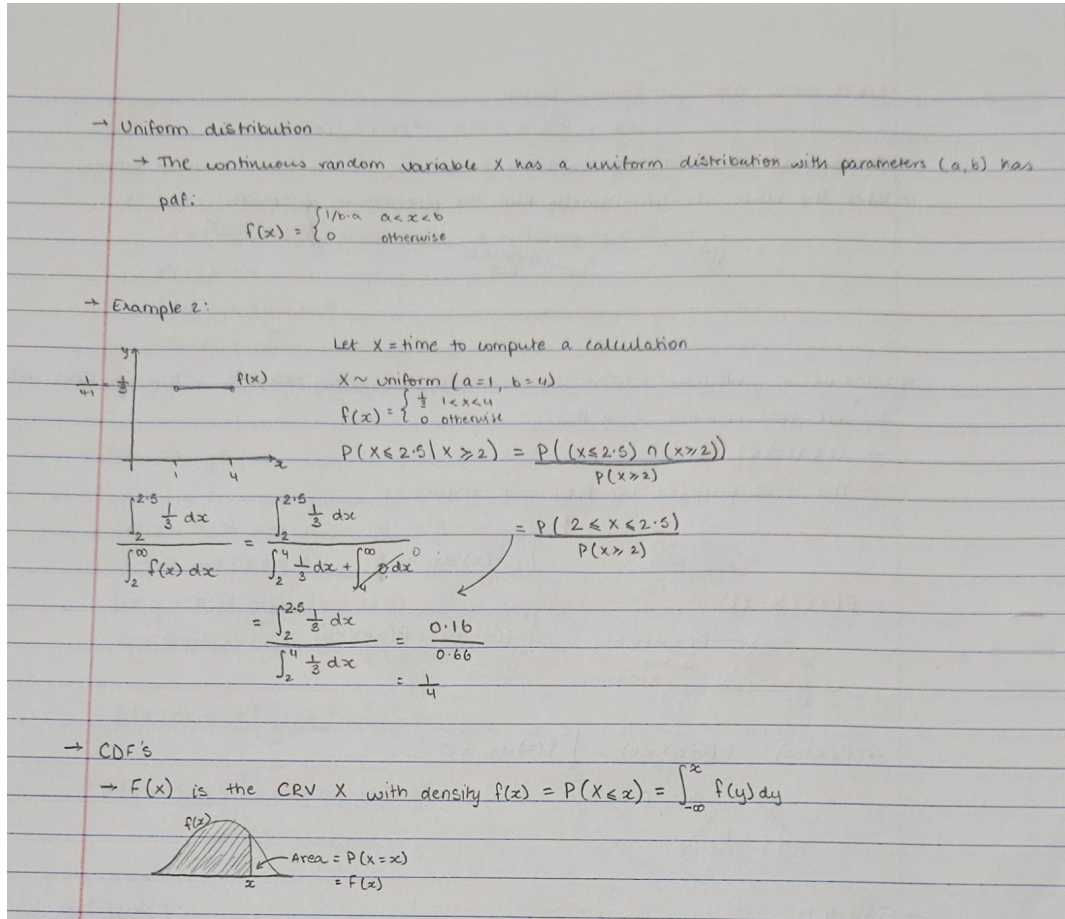 → Uniform distribution
→ The continuous random variable X has a uniform distribution with parameters (a,b) has
pdf:
f(x) = { 1/b-a a<x<b
0 otherwise
→ Example 2:
Let X = time to compute a calculation
y
1/4-1 = 1/3 f(x)
x
1 4
X ~ uniform (a=1, b=4)
f(x) = { 1/3 1<x<4
0 otherwise
P(X≤2.5 | X≥2) = P((X≤2.5) ∩ (X≥2)) / P(X≥2)
= P(2≤X≤2.5) / P(X≥2)
∫₂^2.5 1/3 dx / ∫₂^∞ f(x) dx = ∫₂^2.5 1/3 dx / ∫₂^4 1/3 dx + ∫₄^∞ 0 dx 0
= ∫₂^2.5 1/3 dx / ∫₂^4 1/3 dx = 0.16 / 0.66
= 1/4
→ CDF's
→ F(x) is the CRV X with density f(x) = P(X≤x) = ∫_-∞^x f(y) dy
f(x)
Area = P(X=x)
= F(x)
x